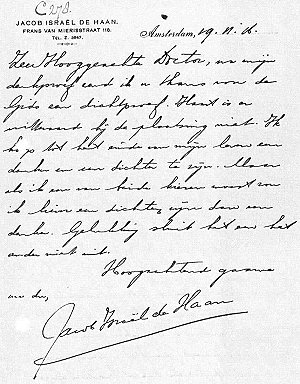 C278.
JACOB ISRAËL DE HAAN.
FRANS VAN MIERISSTRAAT 118.
TEL. Z. 3647.
Amsterdam, 19. VI. 16.
Zeer Hooggeachte Doctor, na mijn
denkproef zend ik u thans voor de
Gids een dichtproef. Haast is er
met de plaatsing niet. Ik
hoop tot het einde van mijn leven een
denker en een dichter te zijn. Maar
als ik een van beide kiezen moest zou
ik liever een dichter zijn dan een
denker. Gelukkig sluit het een het
ander niet uit.
Hoogachtend gaarne
uw dw,
Jacob Israël de Haan